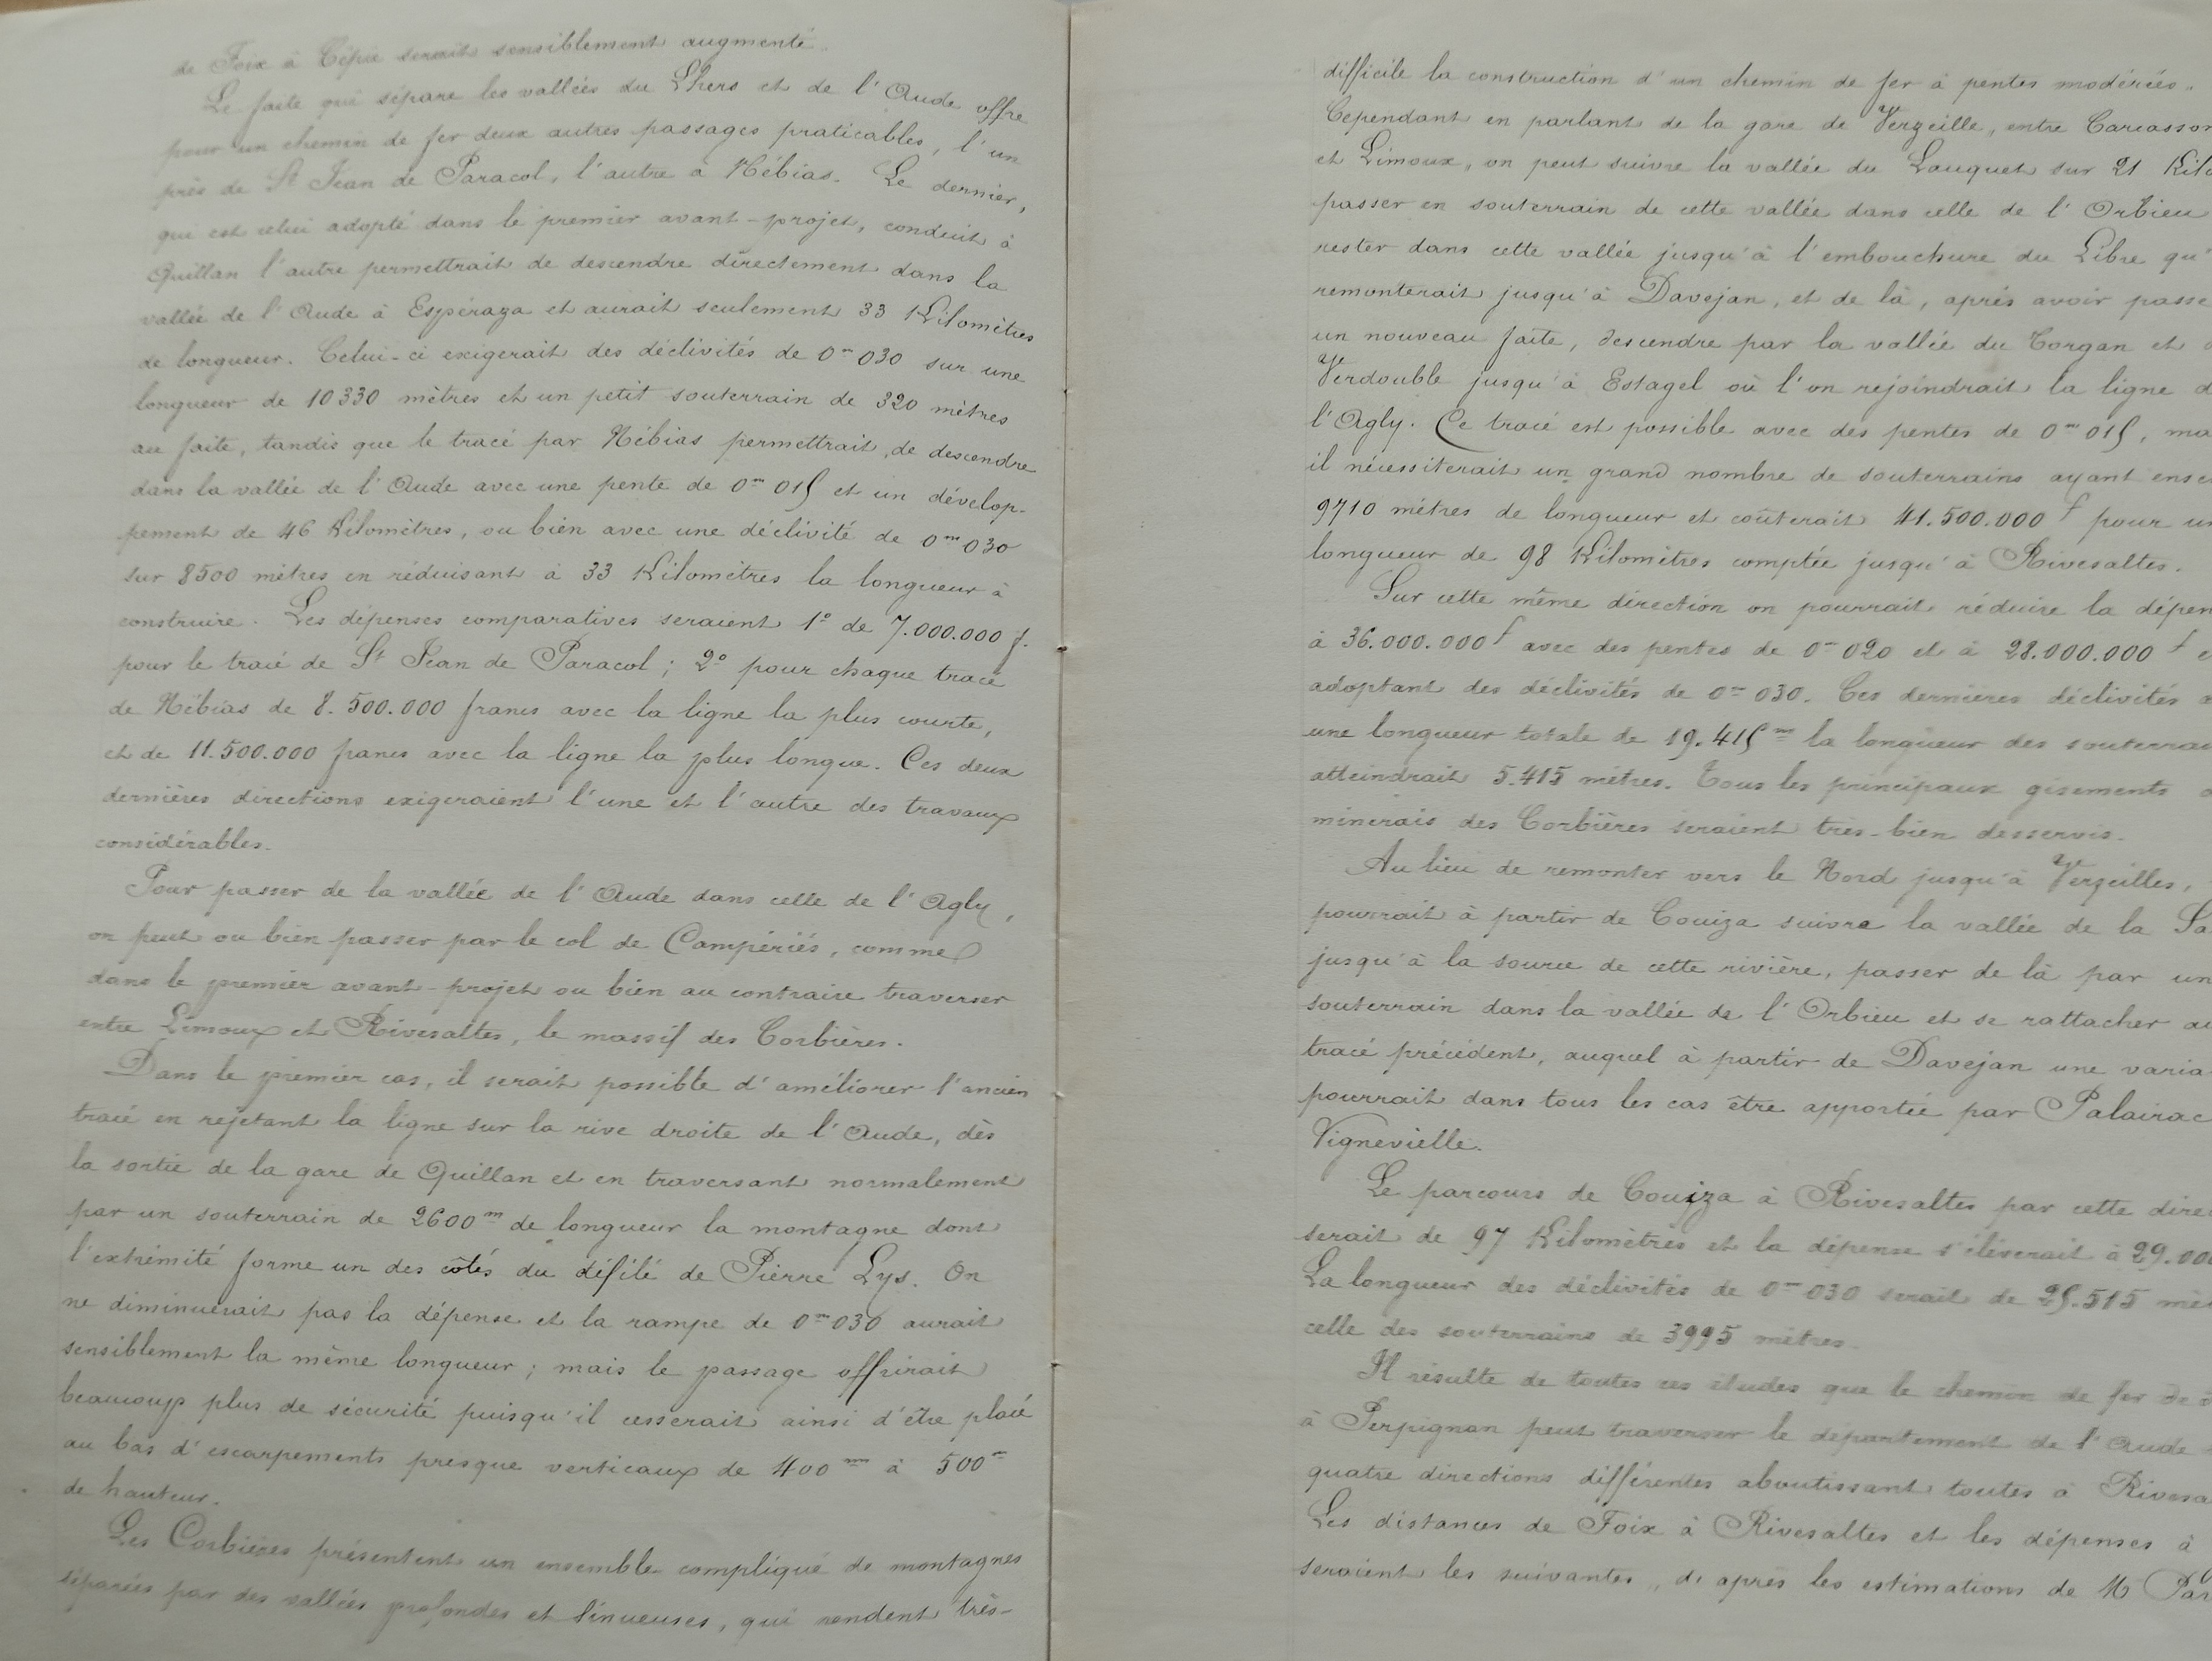 de Foix à Cépie serait sensiblement augmenté.
Le faîte qui sépare les vallées du Lhers et de l'Aude offre
pour un chemin de fer deux autres passages praticables, l'un
près de St Jean de Paracol, l'autre à Nébias. Le dernier,
qui est celui adopté dans le premier avant-projet, conduit à
Quillan l'autre permettrait de descendre directement dans la
vallée de l'Aude à Espéraza et aurait seulement 33 Kilomètres
de longueur. Celui-ci exigerait des déclivités de 0m030 sur une
longueur de 10330 mètres et un petit souterrain de 320 mètres
au faîte, tandis que le tracé par Nébias permettrait de descendre
dans la vallée de l'Aude avec une pente de 0m015 et un dévelop-
pement de 46 Kilomètres, ou bien avec une déclivité de 0m030
sur 8500 mètres en réduisant à 33 Kilomètres la longueur à
construire. Les dépenses comparatives seraient 1° de 7.000.000 f.
pour le tracé de St Jean de Paracol ; 2° pour chaque tracé
de Nébias de 8.500.000 francs avec la ligne la plus courte,
et de 11.500.000 francs avec la ligne la plus longue. Ces deux
dernières directions exigeraient l'une et l'autre des travaux
considérables.
Pour passer de la vallée de l'Aude dans celle de l'Agly,
on peut ou bien passer par le col de Campériés, comme
dans le premier avant-projet ou bien au contraire traverser
entre Limoux et Rivesaltes, le massif des Corbières.
Dans le premier cas, il serait possible d'améliorer l'ancien
tracé en rejetant la ligne sur la rive droite de l'Aude, dès
la sortie de la gare de Quillan et en traversant normalement
par un souterrain de 2600m de longueur la montagne dont
l'extrémité forme un des côtés du défilé de Pierre Lys. On
ne diminuerait pas la dépense et la rampe de 0m030 aurait
sensiblement la même longueur ; mais le passage offrirait
beaucoup plus de sécurité puisqu'il cesserait ainsi d'être placé
au bas d'escarpements presque verticaux de 400m à 500m
de hauteur.
Les Corbières présentent un ensemble compliqué de montagnes
séparées par des vallées profondes et sinueuses, qui rendent très-
difficile la construction d'un chemin de fer à pentes modérées.
Cependant en partant de la gare de Verzeille, entre Carcasson
et Limoux, on peut suivre la vallée du Lauquet sur 21 Kilo
passer en souterrain de cette vallée dans celle de l'Orbieu
rester dans cette vallée jusqu'à l'embouchure du Libre qu'
remonterait jusqu'à Davejan, et de là, après avoir passé
un nouveau faîte, descendre par la vallée du Torgan et
Verdouble jusqu'à Estagel où l'on rejoindrait la ligne d
l'Agly. Ce tracé est possible avec des pentes de 0m015, ma
il nécessiterait un grand nombre de souterrains ayant ense
9710 mètres de longueur et coûterait 41.500.000 f pour un
longueur de 98 Kilomètres comptée jusqu'à Rivesaltes.
Sur cette même direction on pourrait réduire la dépen
à 36.000.000 f avec des pentes de 0m020 et à 28.000.000 f e
adoptant des déclivités de 0m030. Ces dernières déclivités a
une longueur totale de 19.415m la longueur des souterrai
atteindrait 5.415 mètres. Tous les principaux gisements d
minerais des Corbières seraient très-bien desservis.
Au lieu de remonter vers le Nord jusqu'à Verzeilles,
pourrait à partir de Couiza suivre la vallée de la Sa
jusqu'à la source de cette rivière, passer de là par un
souterrain dans la vallée de l'Orbieu et se rattacher au
tracé précédent, auquel à partir de Davejan une varia
pourrait dans tous les cas être apportée par Palairac
Vignevielle.
Le parcours de Couiza à Rivesaltes par cette direc
serait de 97 Kilomètres et la dépense s'élèverait à 29.000
La longueur des déclivités de 0m030 serait de 25.515 mèt
celle des souterrains de 3995 mètres.
Il résulte de toutes ces études que le chemin de fer de
à Perpignan peut traverser le département de l'Aude
quatre directions différentes aboutissant toutes à Rivesa
Les distances de Foix à Rivesaltes et les dépenses à
seraient les suivantes, d'après les estimations de M Par